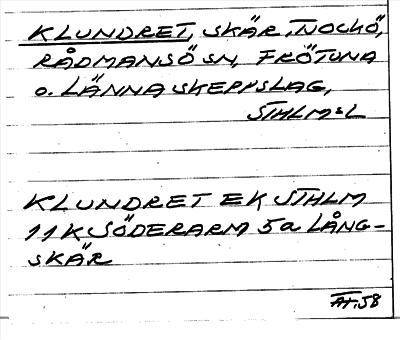 KLUNDRET, SKÄR, NOCKÖ,
RÅDMANSÖ SN, FRÖTUNA
o. LÄNNA SKEPPSLAG,
STHLMSL
KLUNDRET EK STHLM
11K SÖDERARM 5a LÅNG-
SKÄR
ÄT.58